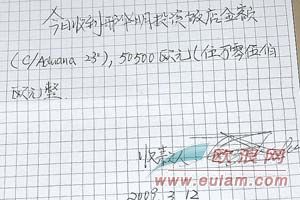 今日收利形以明投资饭店金额
(C/Aduana 23°), 50500欧元(伍万零伍伯
欧元)整
收款人
欧浪网
www.eulam.com
2009. 3. 12